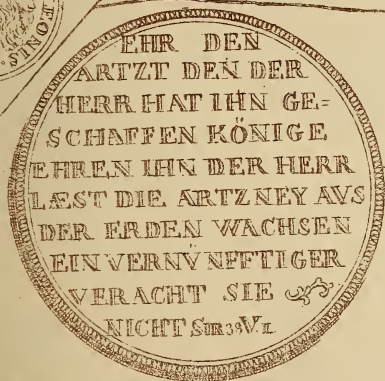 FONIS
EHR DEN
ARTZT DEN DER
HERR HAT IHN GE=
SCHAFFEN KÖNIGE
EHREN IHN DER HERR
LÆST DIE ARTZNEY AVS
DER ERDEN WACHSEN
EIN VERNVNFFTIGER
VERACHT SIE
NICHT SIR 38 V. 1.